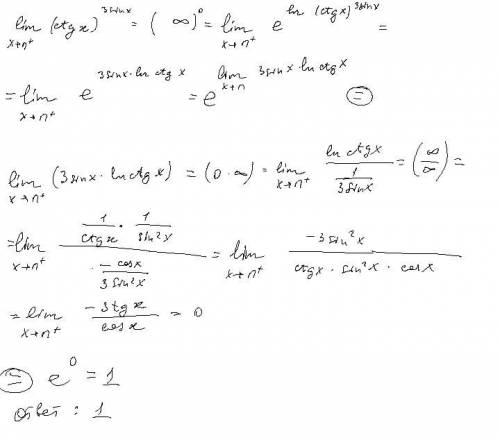 lim x→π⁺ (ctg x)^(3 sin x) = (∞)^0 = lim x→π⁺ e^(ln (ctg x)^(3 sin x)) =
= lim x→π⁺ e^(3 sin x · ln ctg x) = e^(lim x→π 3 sin x · ln ctg x) ⊜
lim x→π⁺ (3 sin x · ln ctg x) = (0·∞) = lim x→π⁺ (ln ctg x)/(1/(3 sin x)) = (∞/∞) =
= lim x→π⁺ (1/(ctg x) · 1/(sin²x))/(· (-cos x)/(3 sin²x)) = lim x→π⁺ (-3 sin²x)/(ctg x · sin²x · cos x)
= lim x→π⁺ (-3tg x)/(cos x) = 0
⊜ e^0 = 1
ответ : 1